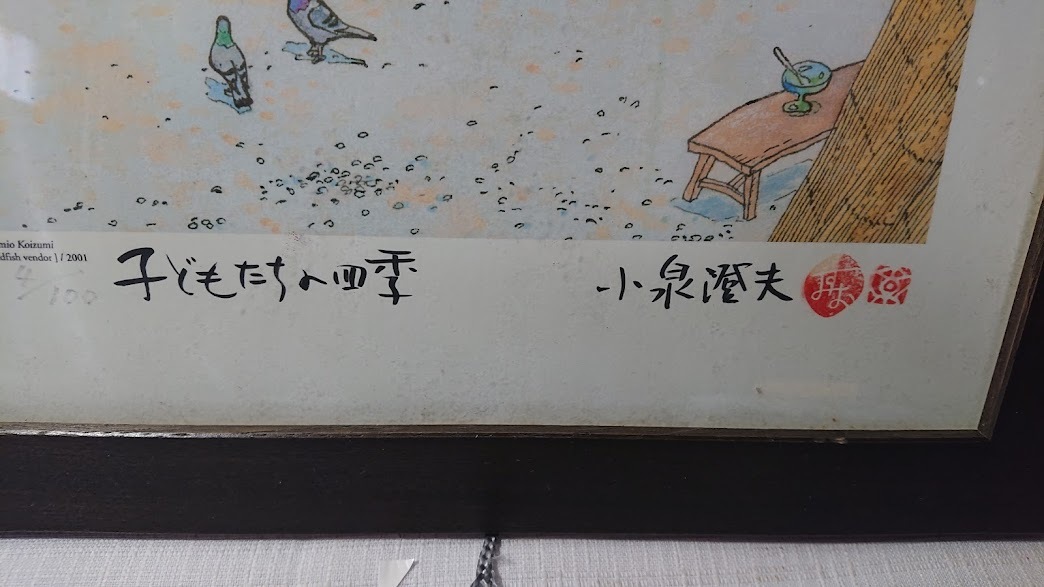 mio Koizumi
dfish vendor ] / 2001
4/100
子どもたちの四季
小泉澄夫